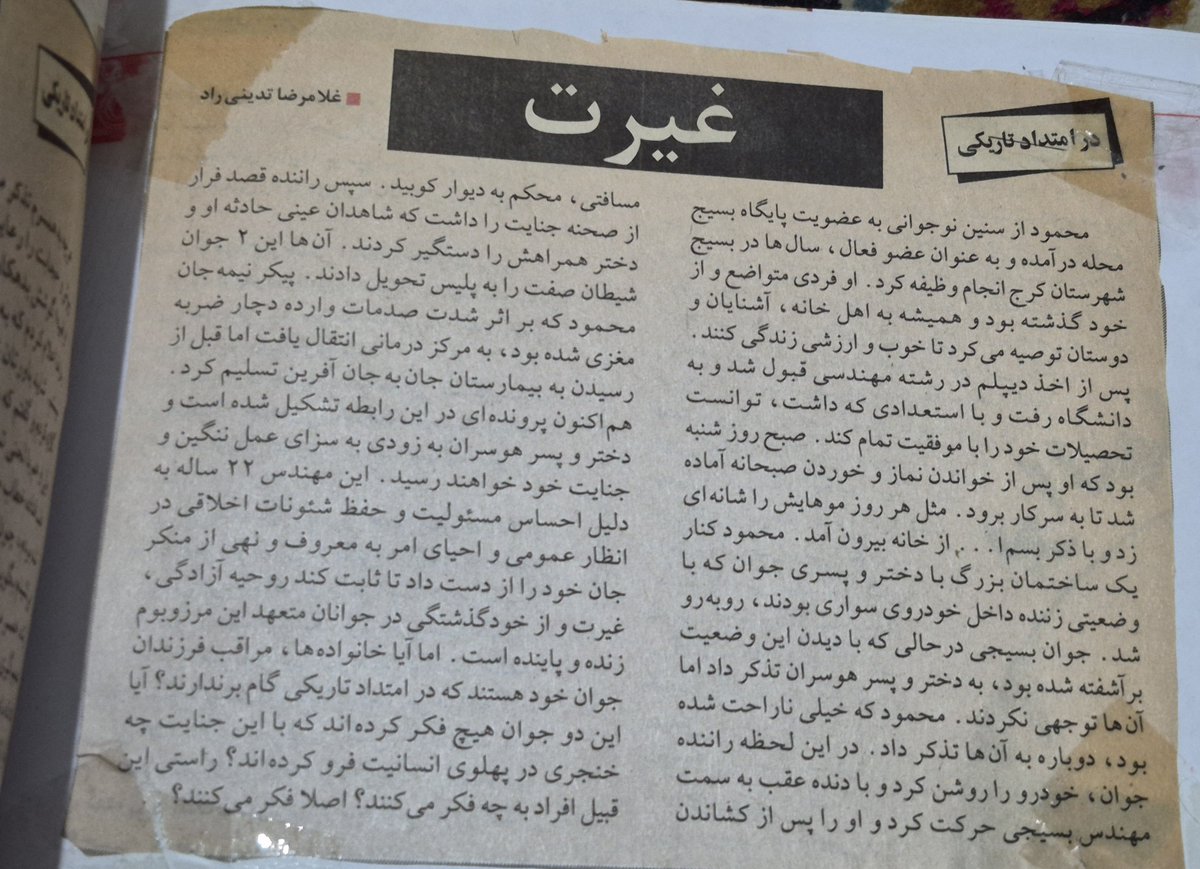 در امتداد تاریکی
غیرت
غلامرضا تدینی‌راد
محمود از سنین نوجوانی به عضویت پایگاه بسیج
محله درآمده و به عنوان عضو فعال، سال‌ها در بسیج
شهرستان کرج انجام وظیفه کرد. او فردی متواضع و از
خود گذشته بود و همیشه به اهل خانه، آشنایان و
دوستان توصیه می‌کرد تا خوب و ارزشی زندگی کنند.
پس از اخذ دیپلم در رشته مهندسی قبول شد و به
دانشگاه رفت و با استعدادی که داشت، توانست
تحصیلات خود را با موفقیت تمام کند. صبح روز شنبه
بود که او پس از خواندن نماز و خوردن صبحانه آماده
شد تا به سرکار برود. مثل هر روز موهایش را شانه‌ای
زد و با ذکر بسم‌ا... از خانه بیرون آمد. محمود کنار
یک ساختمان بزرگ با دختر و پسری جوان که با
وضعیتی زننده داخل خودروی سواری بودند، روبه‌رو
شد. جوان بسیجی درحالی که با دیدن این وضعیت
برآشفته شده بود، به دختر و پسر هوسران تذکر داد اما
آن‌ها توجهی نکردند. محمود که خیلی ناراحت شده
بود، دوباره به آن‌ها تذکر داد. در این لحظه راننده
جوان، خودرو را روشن کرد و با دنده عقب به سمت
مهندس بسیجی حرکت کرد و او را پس از کشاندن
مسافتی، محکم به دیوار کوبید. سپس راننده قصد فرار
از صحنه جنایت را داشت که شاهدان عینی حادثه او و
دختر همراهش را دستگیر کردند. آن‌ها این ۲ جوان
شیطان صفت را به پلیس تحویل دادند. پیکر نیمه‌جان
محمود که بر اثر شدت صدمات وارده دچار ضربه
مغزی شده بود، به مرکز درمانی انتقال یافت اما قبل از
رسیدن به بیمارستان جان‌به‌جان آفرین تسلیم کرد.
هم‌اکنون پرونده‌ای در این رابطه تشکیل شده است و
دختر و پسر هوسران به زودی به سزای عمل ننگین و
جنایت خود خواهند رسید. این مهندس ۲۲ ساله به
دلیل احساس مسئولیت و حفظ شئونات اخلاقی در
انظار عمومی و احیای امر به معروف و نهی از منکر
جان خود را از دست داد تا ثابت کند روحیه آزادگی،
غیرت و از خودگذشتگی در جوانان متعهد این مرزوبوم
زنده و پاینده است. اما آیا خانواده‌ها، مراقب فرزندان
جوان خود هستند که در امتداد تاریکی گام برندارند؟ آیا
این دو جوان هیچ فکر کرده‌اند که با این جنایت چه
خنجری در پهلوی انسانیت فرو کرده‌اند؟ راستی این
قبیل افراد به چه فکر می‌کنند؟ اصلا فکر می‌کنند؟